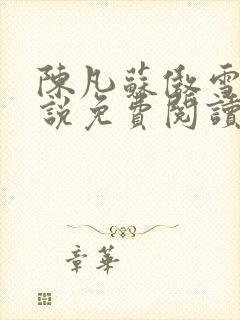 陳凡蘇傲雪
說免費閱讀
章華